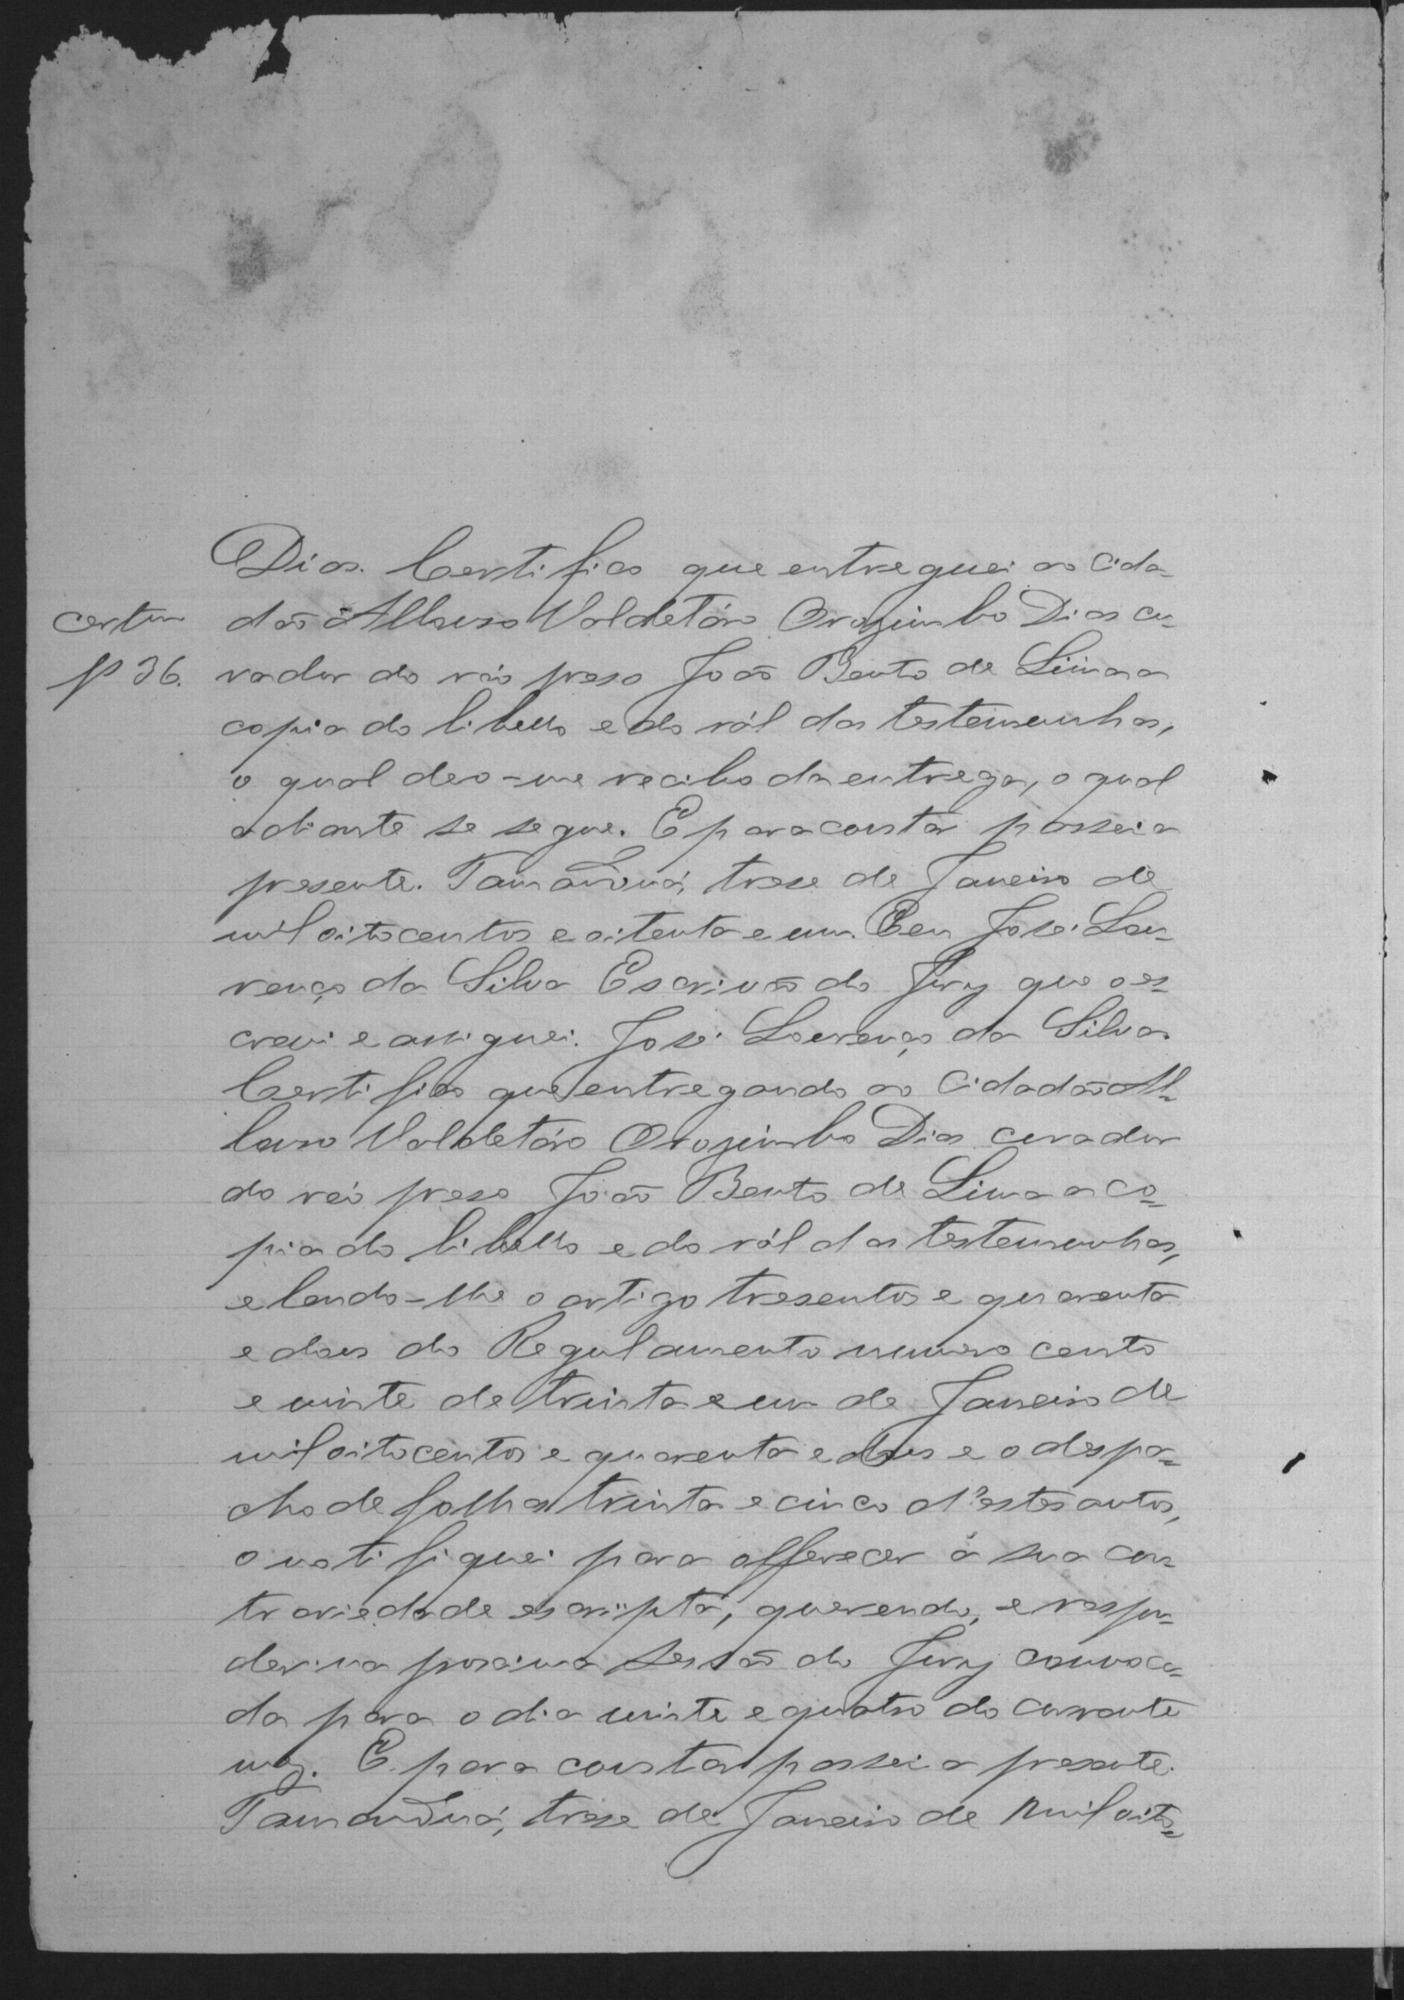 Dias. Certifico que entreguei ao Cida-
dão Allauso Valdetáro Orozimbo Dias cu-
certam
fs 36.
rador do réo preso João Bento de Lima a
copia do libello e do ról das testemunhas,
o qual deo-me recibo da entrega, o qual
adiante se segue. E para constar passei a
presente. Tamanduá, trese de Janeiro de
mil oitocentos e oitenta e um. Eu José Lou-
renço da Silva Escrivão do Jury que o es-
crevi e assignei. José Lourenço da Silva.
Certifico que entregando ao Cidadão Al-
lauso Valdetáro Orozimbo Dias curador
do réo preso João Bento de Lima a co-
pia do libello e do ról das testemunhas,
e lendo-lhe o artigo tresentos e quarenta
e dous do Regulamento numero cento
e vinte de trinta e um de Janeiro de
mil oitocentos e quarenta e dous e o despa-
cho de folhas trinta e cinco d'estes autos,
o notifiquei para offerecer á sua con-
trariedade escripta, querendo, e respon-
der na proxima sessão do Jury convoca-
da para o dia vinte e quatro do corrente
mez. E para constar passei a presente.
Tamanduá, trese de Janeiro de mil oito-